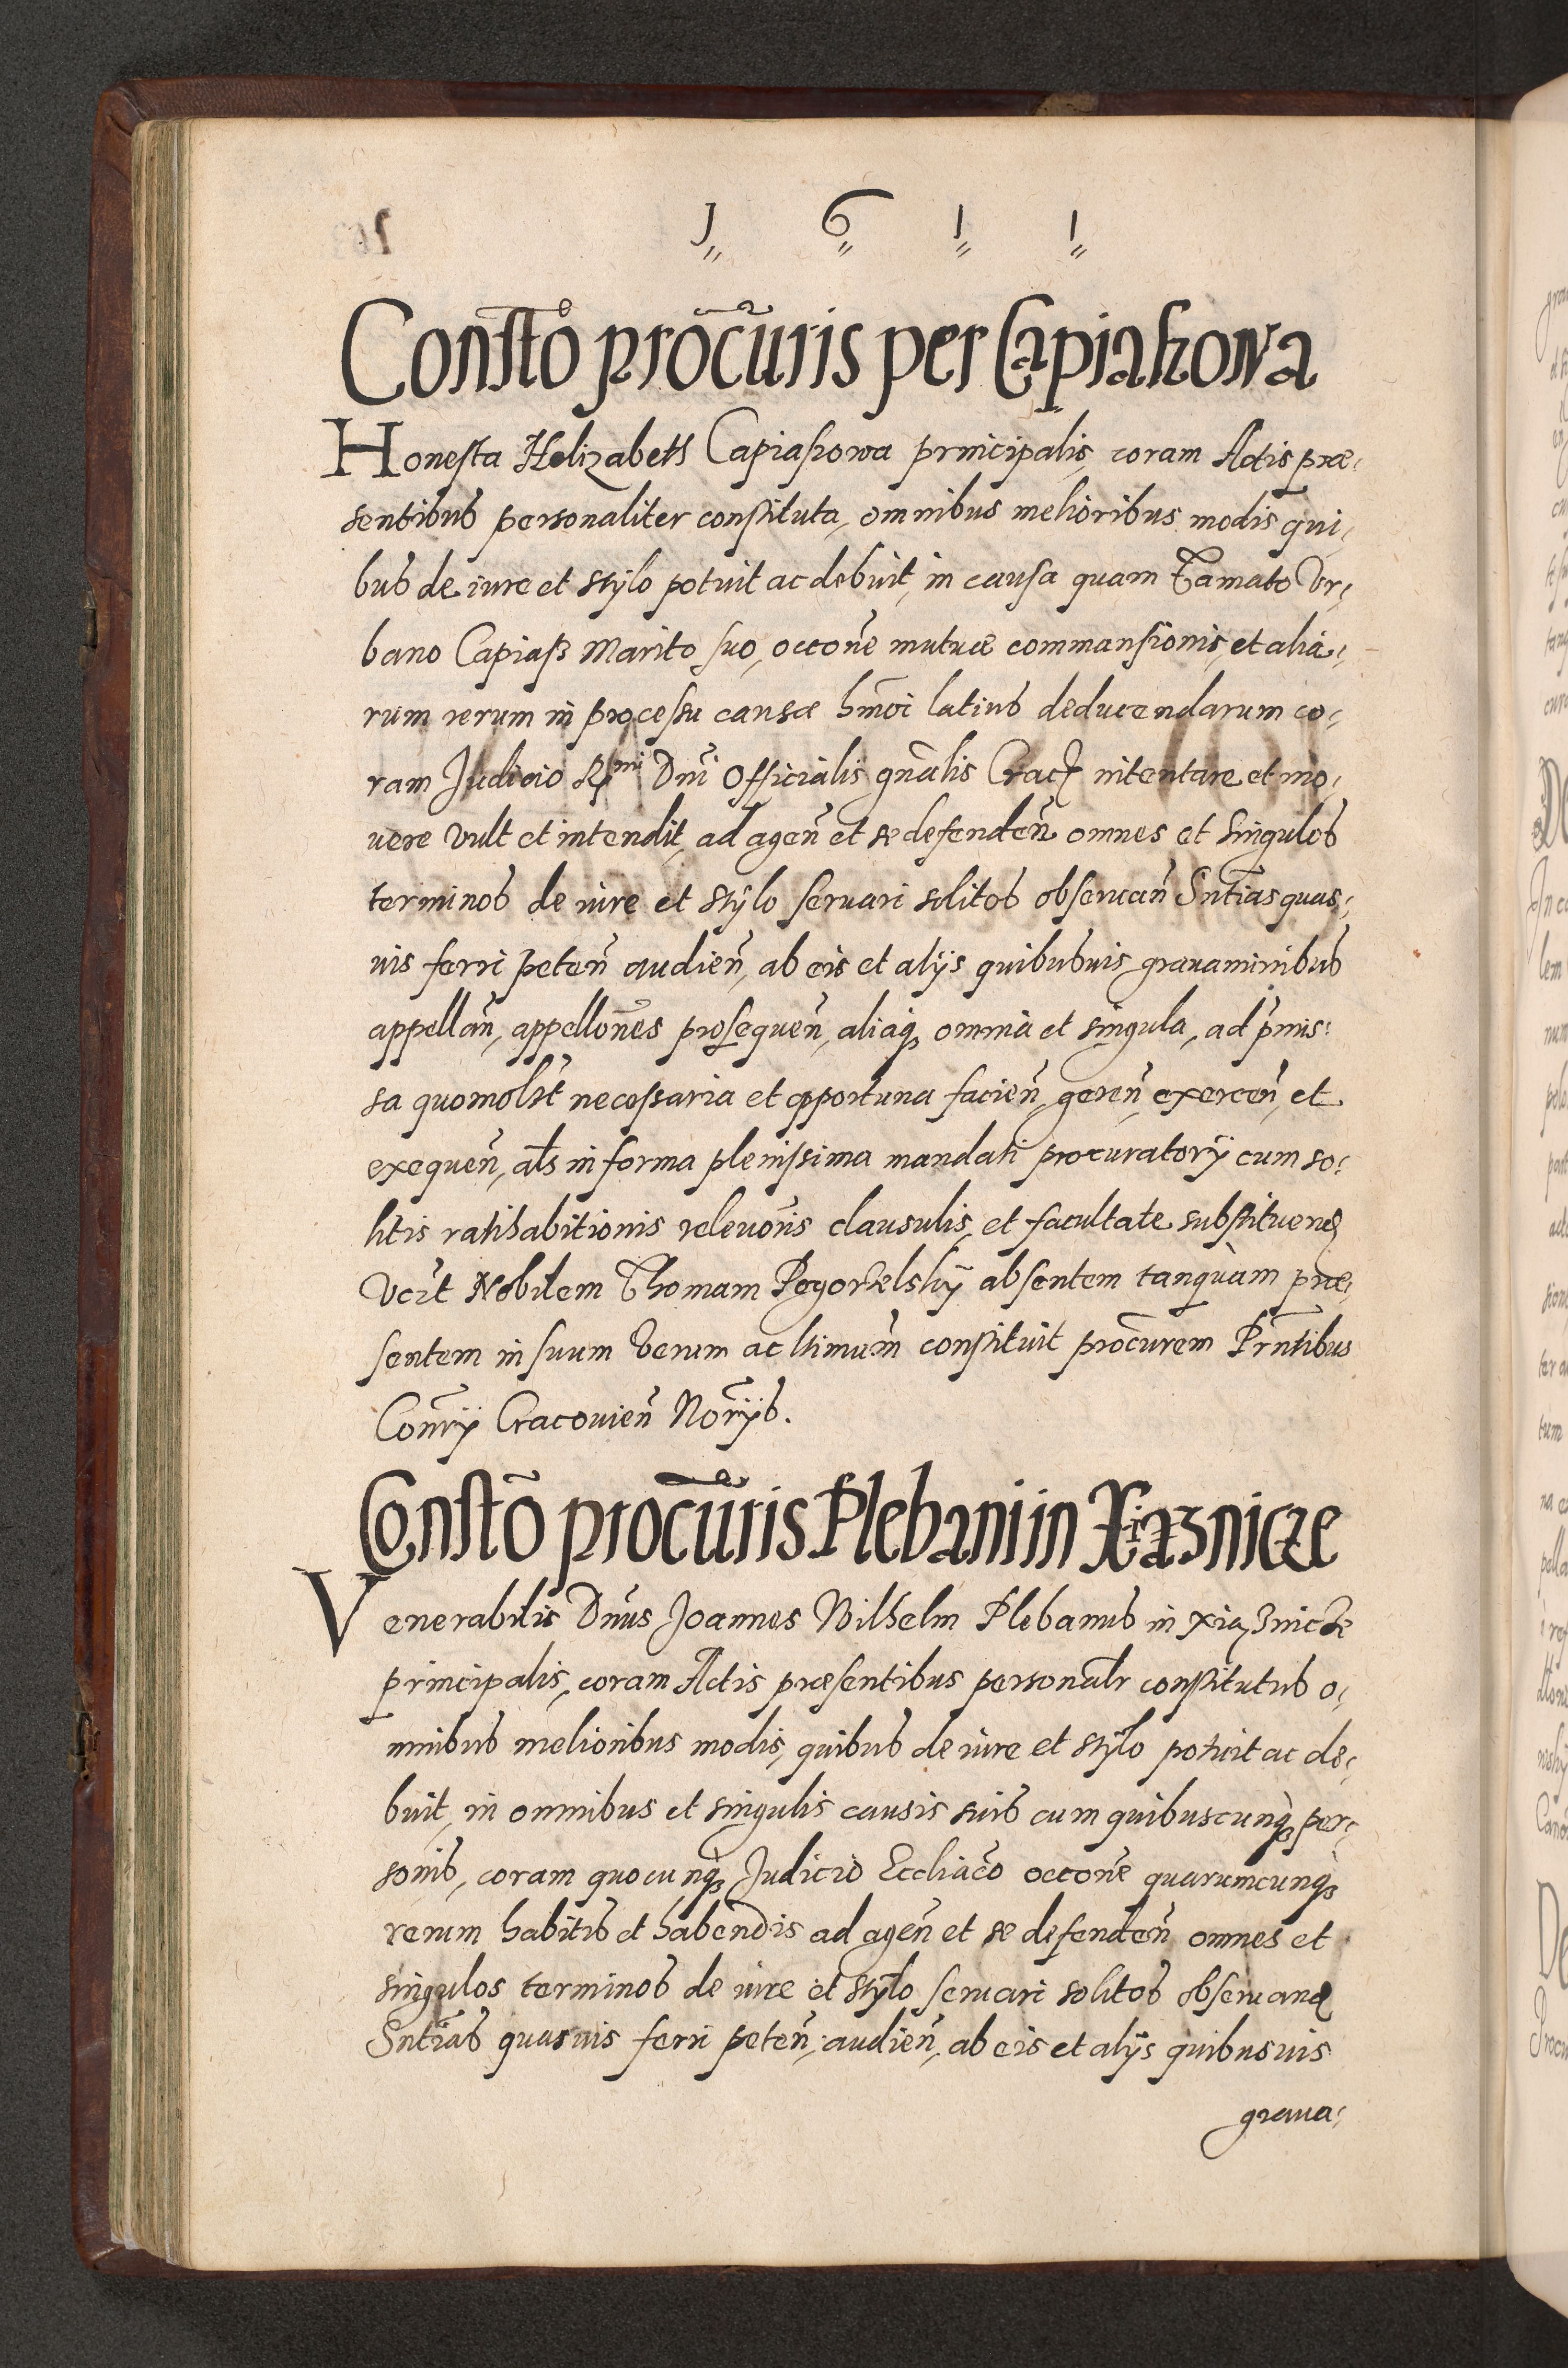 1 6 1 1
Constõ procũris per Capiaszowa
Honesta Helizabeth Capiaszowa principalis, coram Actis præ-
sentibus personaliter constituta, omnibus melioribus modis qui-
bus de iure et stylo potuit ac debuit, in causa quam famato Vr-
bano Capiasz Marito suo, occõne mutuæ commansionis, et alia-
rum rerum in processu causæ hmõi latius deducendarum co-
ram Judicio Rmi Dni Officialis gnãlis Crac intentare et mo-
uere vult et intendit, ad ageñ et se defendeñ omnes et singulos
terminos de iure et stylo seruari solitos obseruañ Sntias quas-
uis ferri peteñ audieñ, ab eis et alijs quibusuis grauaminibus
appellañ, appellões prosequeñ, aliaq3 omnia et singula, ad pmis-
sa quomolit necessaria et opportuna facieñ, gereñ, exerceñ, et
exequeñ, als in forma plenissima mandati procuratorij cum so-
litis ratihabitionis releuõnis clausulis, et facultate substituend
Vcit Nobilem Thomam Pegorzelskÿ absentem tanquàm præ-
sentem in suum verum ac ltimum constituit procurem Prntibus
Conrÿ Cracouieñ Norÿs.
Constõ procũris Plebani in Xiaznicze
Venerabilis Dnus Joannes Wilhelm Plebanus in Xiąznicze
principalis, coram Actis præsentibus personalr constitutus o-
mnibus melioribus modis, quibus de iure et stylo potuit ac de-
buit, in omnibus et singulis causis suis cum quibuscunq3 per-
sonis, coram quocunq3 Judicio Eccliaco occõne quarumcunq3
rerum habitis et habendis ad ageñ et se defendeñ omnes et
singulos terminos de iure et stylo seruari solitos obseruand
Sntias quasuis ferri peteñ, audieñ, ab eis et alijs quibusuis
graua-